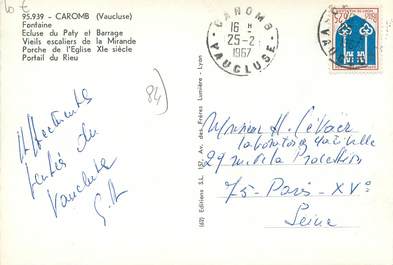 10 €
95.939 - CAROMB (Vaucluse)
Fontaine
Ecluse du Paty et Barrage
Vieils escaliers de la Mirande
Porche de l'Eglise XIe siècle
Portail du Rieu
CAROMB
16 H
25-2
1967
VAUCLUSE
84)
du
Vaucluse
(62) Editions S.L. 157, Av. des Frères Lumière - Lyon
Monsieur H.
laboratoires
29 rue de la Procession
75 - Paris - XVº
Seine